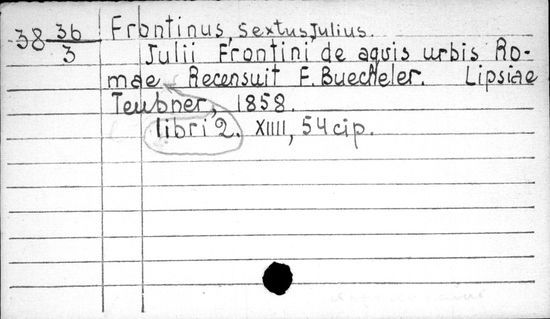 38 36/3 Frontinus, Sextus Julius.
Julii Frontini de aquis urbis Ro-
mae Recensuit F. Buecheler. Lipsiae
Teubner, 1858.
libri 2. XIIII, 54 cip.